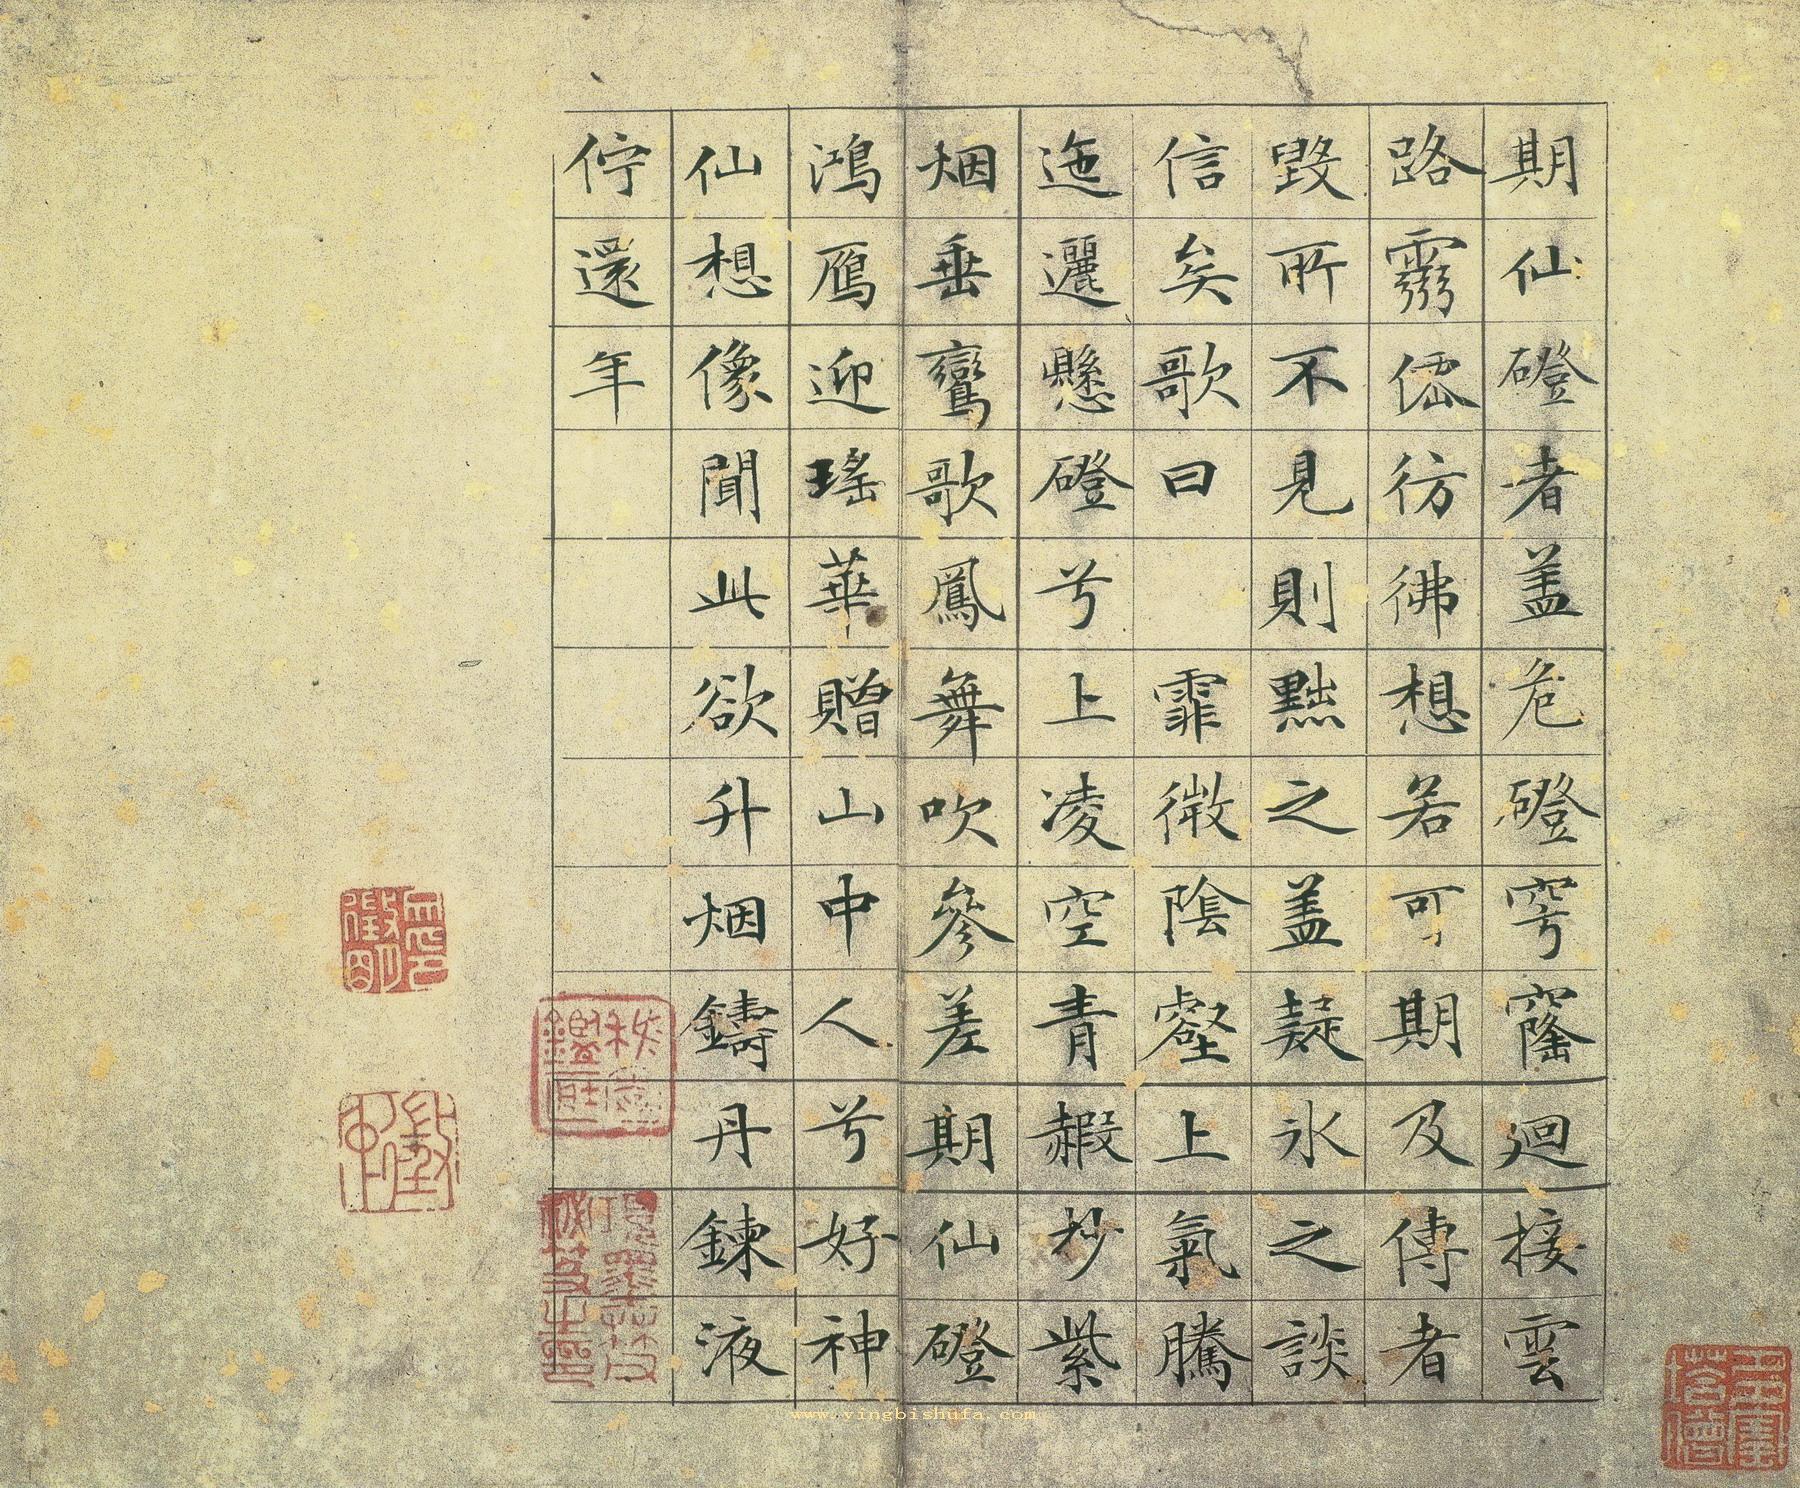 期仙磴者盖危磴穹窿迴接雲
路霛僊彷彿想若可期及傳者
毀所不見則黜之盖疑氷之談
信矣歌曰 霏微陰壑上氣騰
迤邐懸磴兮上凌空青霞杪紫
烟垂鸞歌鳳舞吹參差期仙磴
鴻鴈迎瑤華贈山中人兮好神
仙想像聞此欲升烟鑄丹鍊液
佇還年
www.yingbishufa.com